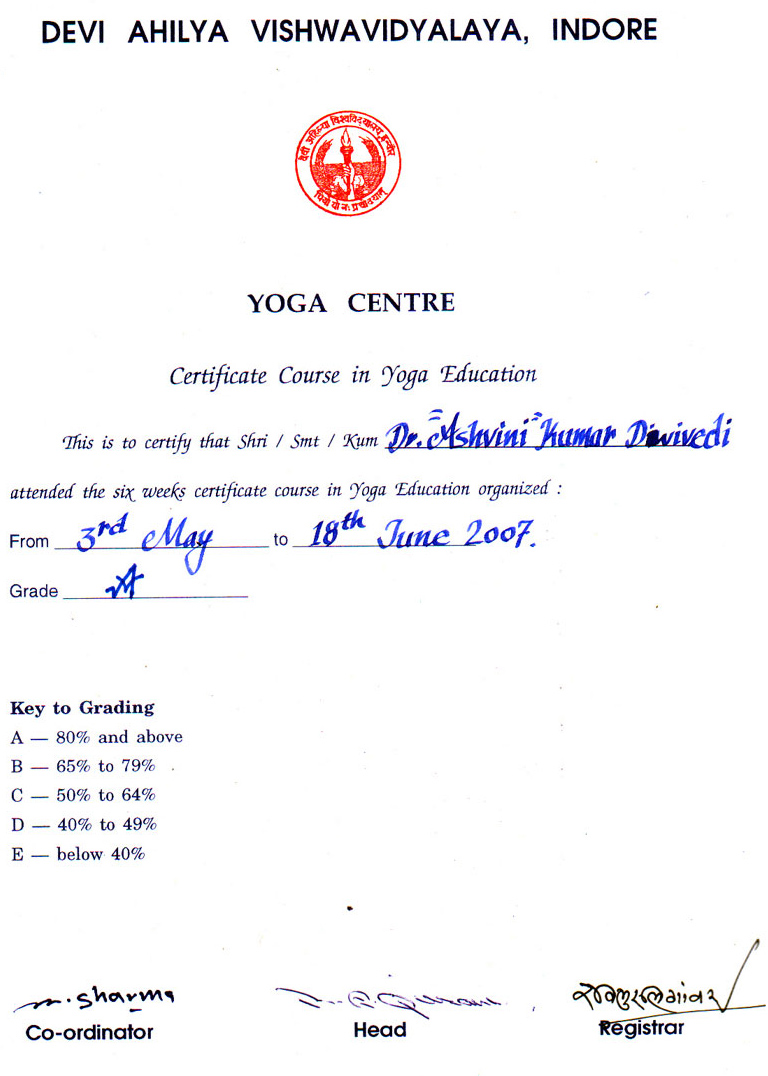 DEVI AHILYA VISHWAVIDYALAYA, INDORE
देवी अहिल्या विश्वविद्यालय, इन्दौर
धियो यो नः प्रचोदयात्
YOGA CENTRE
Certificate Course in Yoga Education
This is to certify that Shri / Smt / Kum Dr. Ashvini Kumar Dwivedi
attended the six weeks certificate course in Yoga Education organized :
From 3rd May to 18th June 2007.
Grade A
Key to Grading
A — 80% and above
B — 65% to 79%
C — 50% to 64%
D — 40% to 49%
E — below 40%
m. Sharma
Co-ordinator Head Registrar